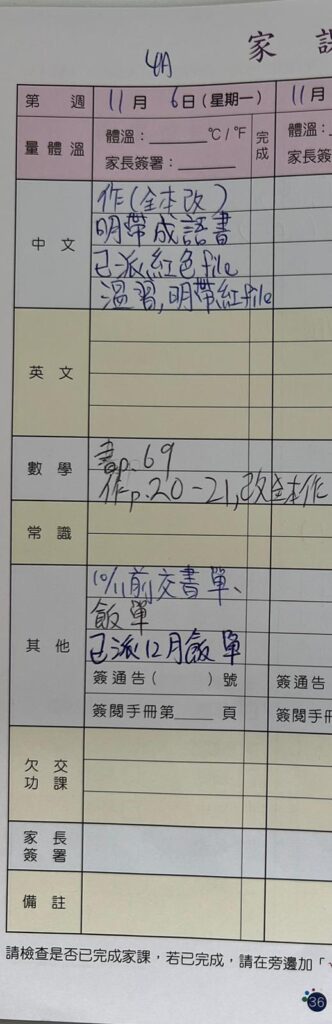 家 課
4A
第 週 11月 6日(星期一) 11月
量體溫 體溫:______℃/℉ 完成 體溫:
家長簽署:______ 家長簽
中文 作(全本改)
明帶成語書
已派紅色file
溫習,明帶紅file
英文
數學 書p.69
作p.20-21,改全本作
常識
其他 10/11前交書單、
飯單
已派12月飯單
簽通告( )號 簽通告
簽閱手冊第____頁 簽閱手冊
欠交功課
家長簽署
備註
請檢查是否已完成家課,若已完成,請在旁邊加「
36